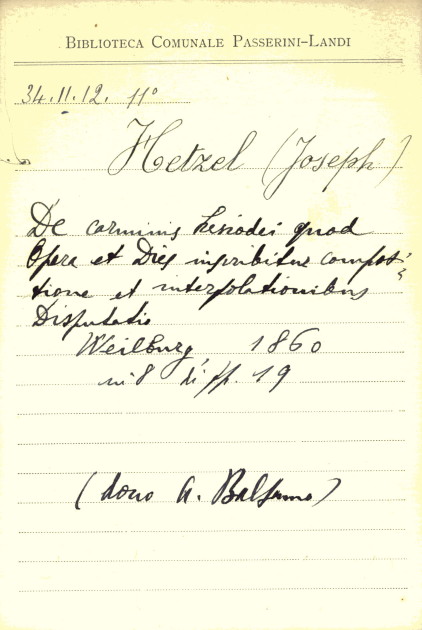 BIBLIOTECA COMUNALE PASSERINI-LANDI
34.II.12. 11°
Hetzel (Joseph)
De carminis hesiodei quod
Opera et Dies inscribitur composi-
tione et interpolationibus
Disputatio
Weilburg, 1860
in 8° di pp. 19
(dono A. Balsamo)